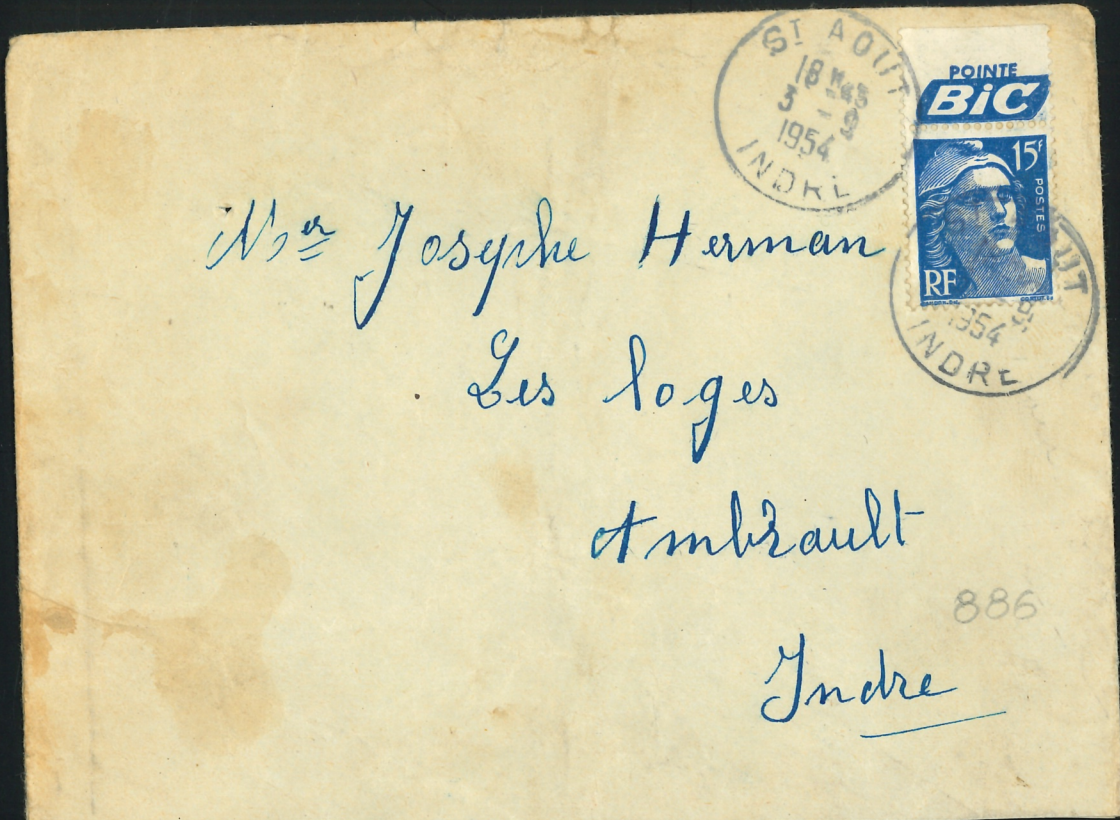 ST AOUT
18 H 45
3 - 9
1954
INDRE
POINTE
BiC
15f
POSTES
RF
OUT
9
1954
INDRE
Mer Josephe Herman
Les loges
Ambrault
886
Indre